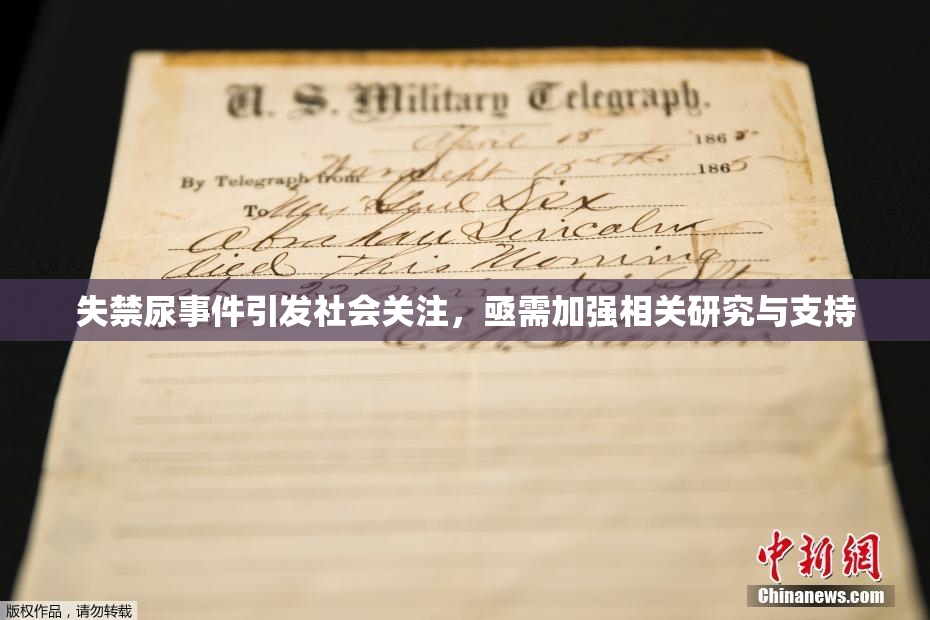 U. S. Military Telegraph.
April 15 1865
By Telegraph from War Dept 15th 1865
To Maj Genl Dix
Abraham Lincoln
died This Morning
失禁尿事件引发社会关注，亟需加强相关研究与支持
中新网
Chinanews.com
版权作品，请勿转载